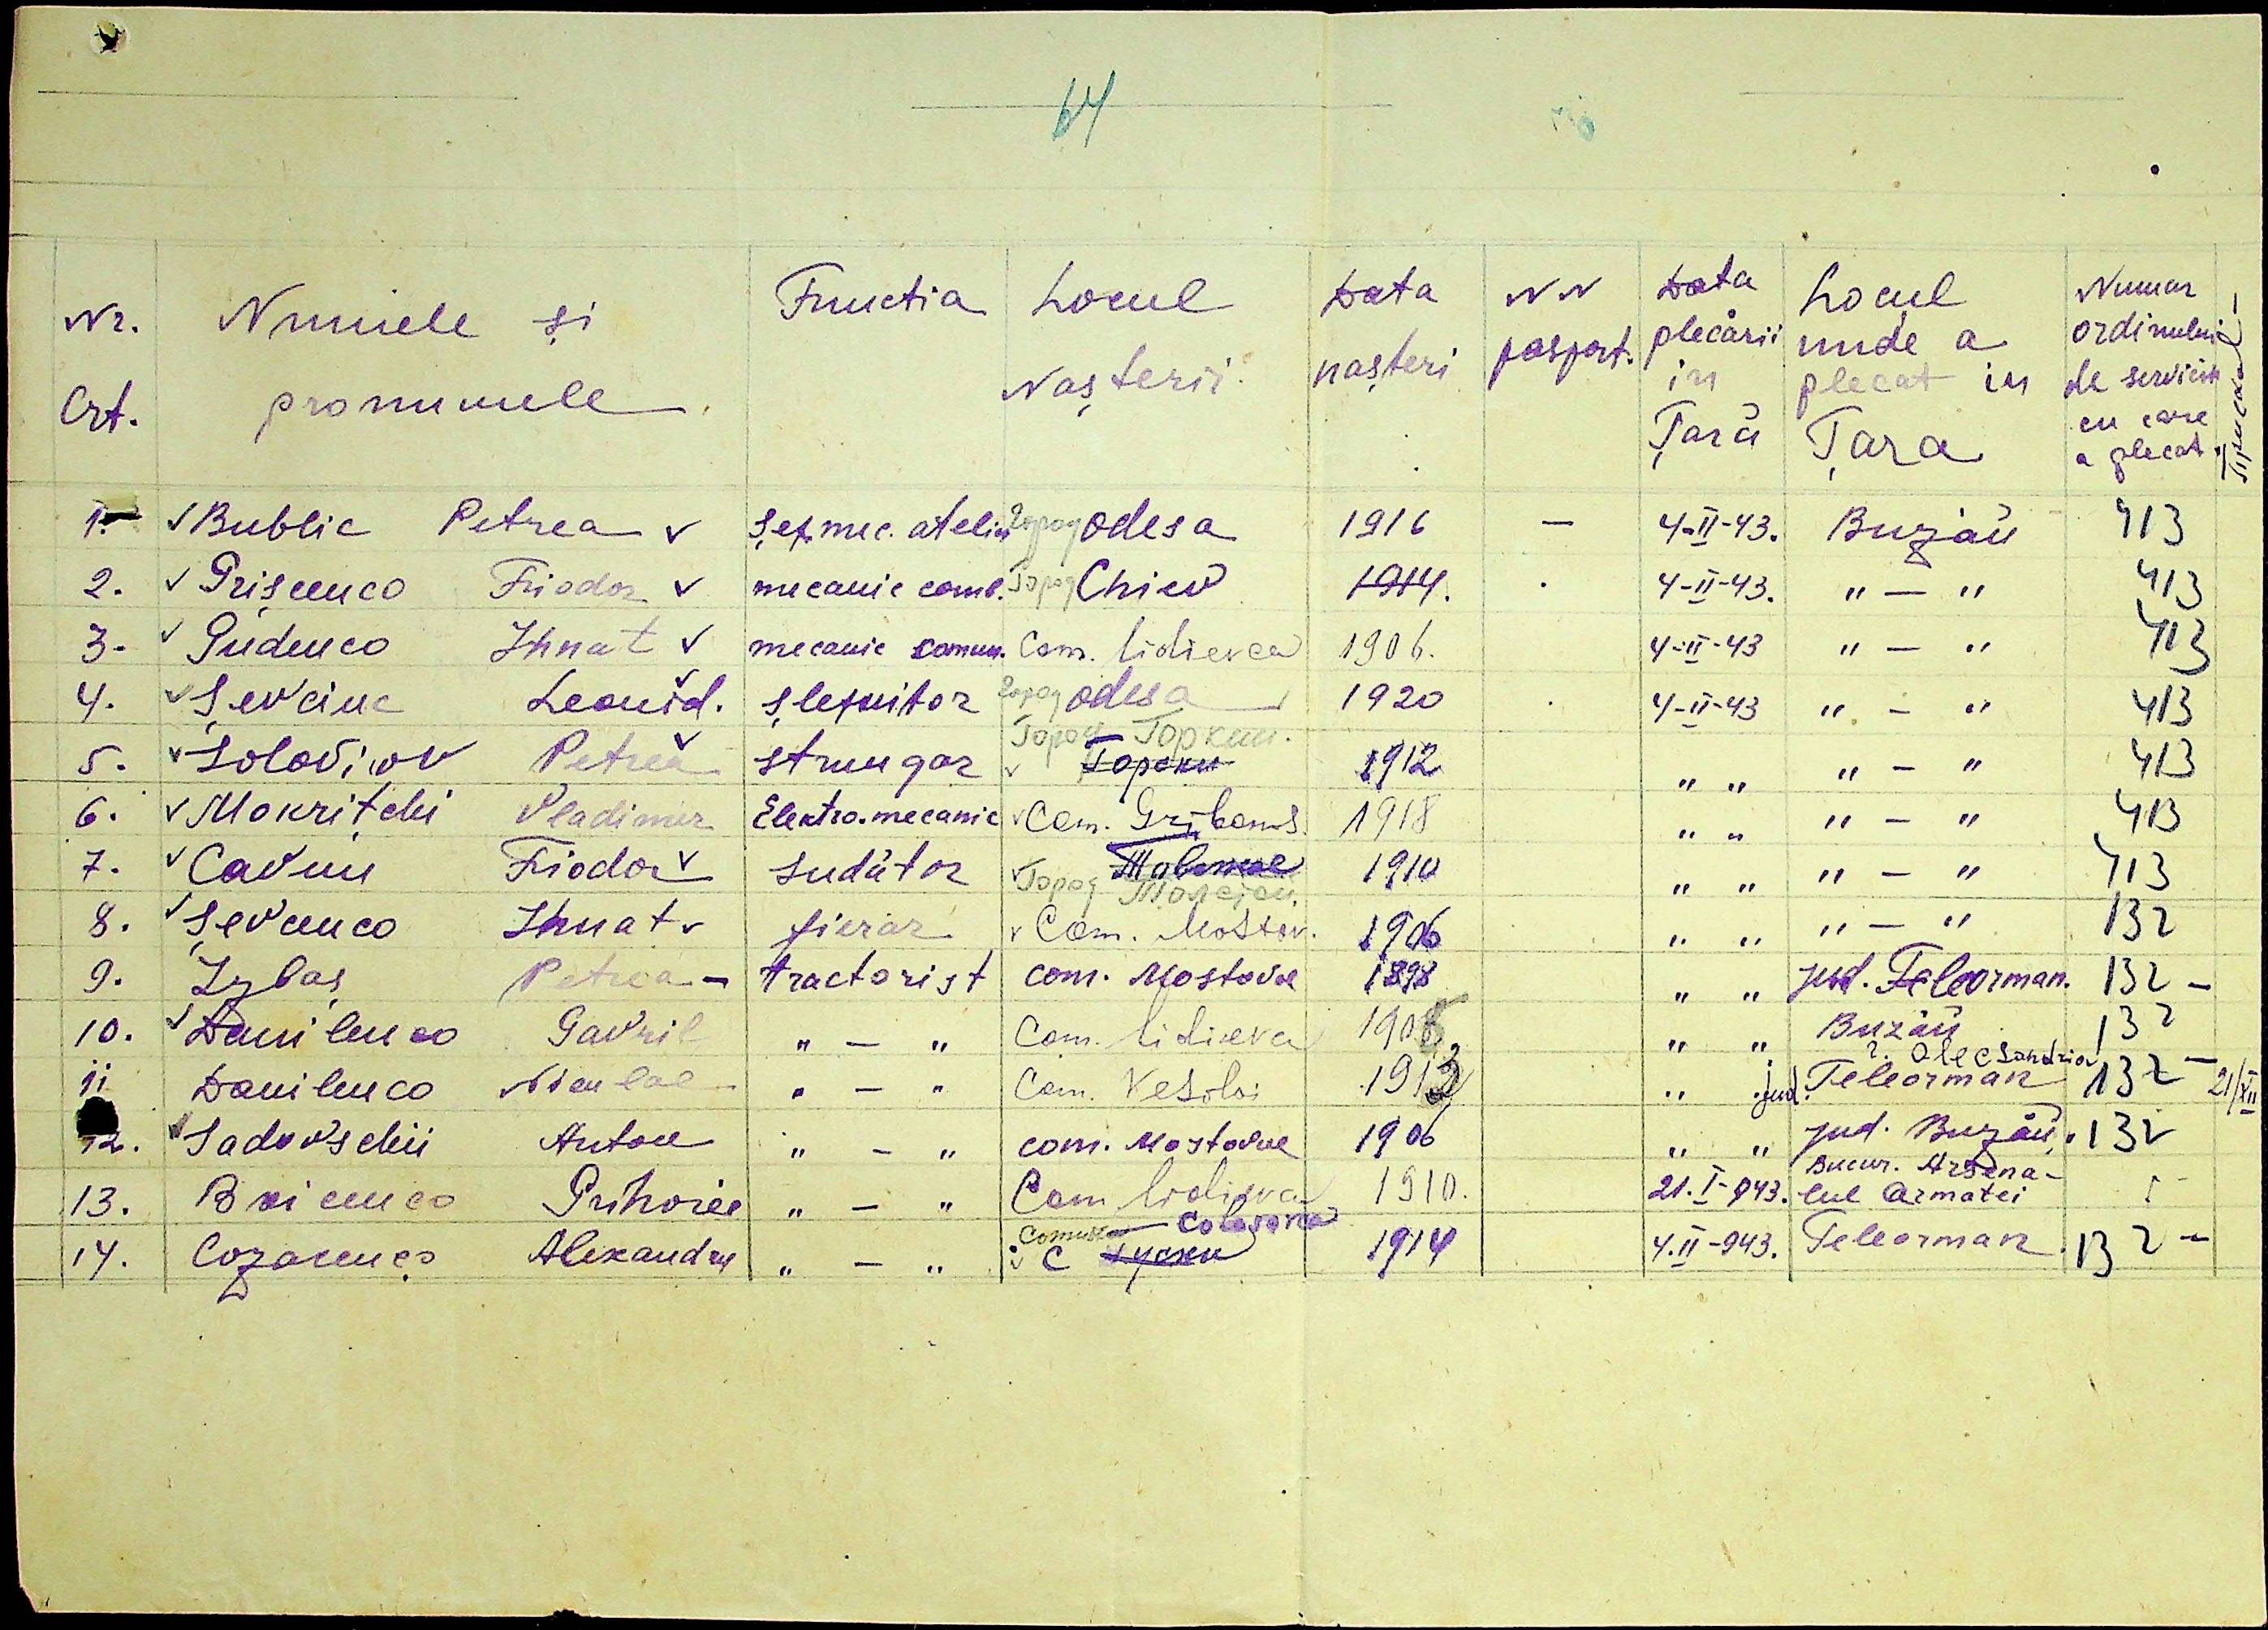 64
Nr. Crt. Numele și pronumele Functia Locul Nașterii Data nașteri NN pasport. Data plecării in Țară Locul unde a plecat in Țara Numar ordinului de serviciu cu care a plecat
1. Bublic Petrea șef mec. atelier город Odesa 1916 — 4-II-43. Buzău 413
2. Prișcenco Fiodor mecanic comb. Город Chiev 1914. 4-II-43. " — " 413
3. Pudenco Ihnat mecanic comun. Com. Lidievca 1906. 4-II-43 " — " 413
4. Șevciuc Leonid. șlefuitor город Odesa 1920 4-II-43 " — " 413
Город Горкии.
5. Soloviov Petrea strungar Горски 1912 " " " — " 413
6. Mokrițchi Vladimir Elektro-mecanic Com. Gribanos. 1918 " " " — " 413
7. Cavun Fiodor sudător 1910 " " " — " 413
Город
8. Șevcenco Ihnat fierar Com. Mostov. 1906 " " " — " 132
9. Izbaș Petrea — tractorist com. Mostovoe 1898 " " jud. Teleorman. 132 —
10. Danilenco Gavril " — " Com. Lidievca 1905 " " Buzău 132
r. Alecsandria
11 Danilenco Nicolae " — " Com. Vesoloi 1913 " " jud. Teleorman 132 — 21/XII
12. Sadovschii Anton " — " com. Mostovoe 1906 " " jud. Buzău. 132
Bucur. Arsena-
13. Prihorie " — " Com Lidievca 1910. 21.I-943. lul Armatei
Comuna Colosovca
14. Cozacenco Alexandru " — " C 1914 4.II-943. Teleorman. 132 —